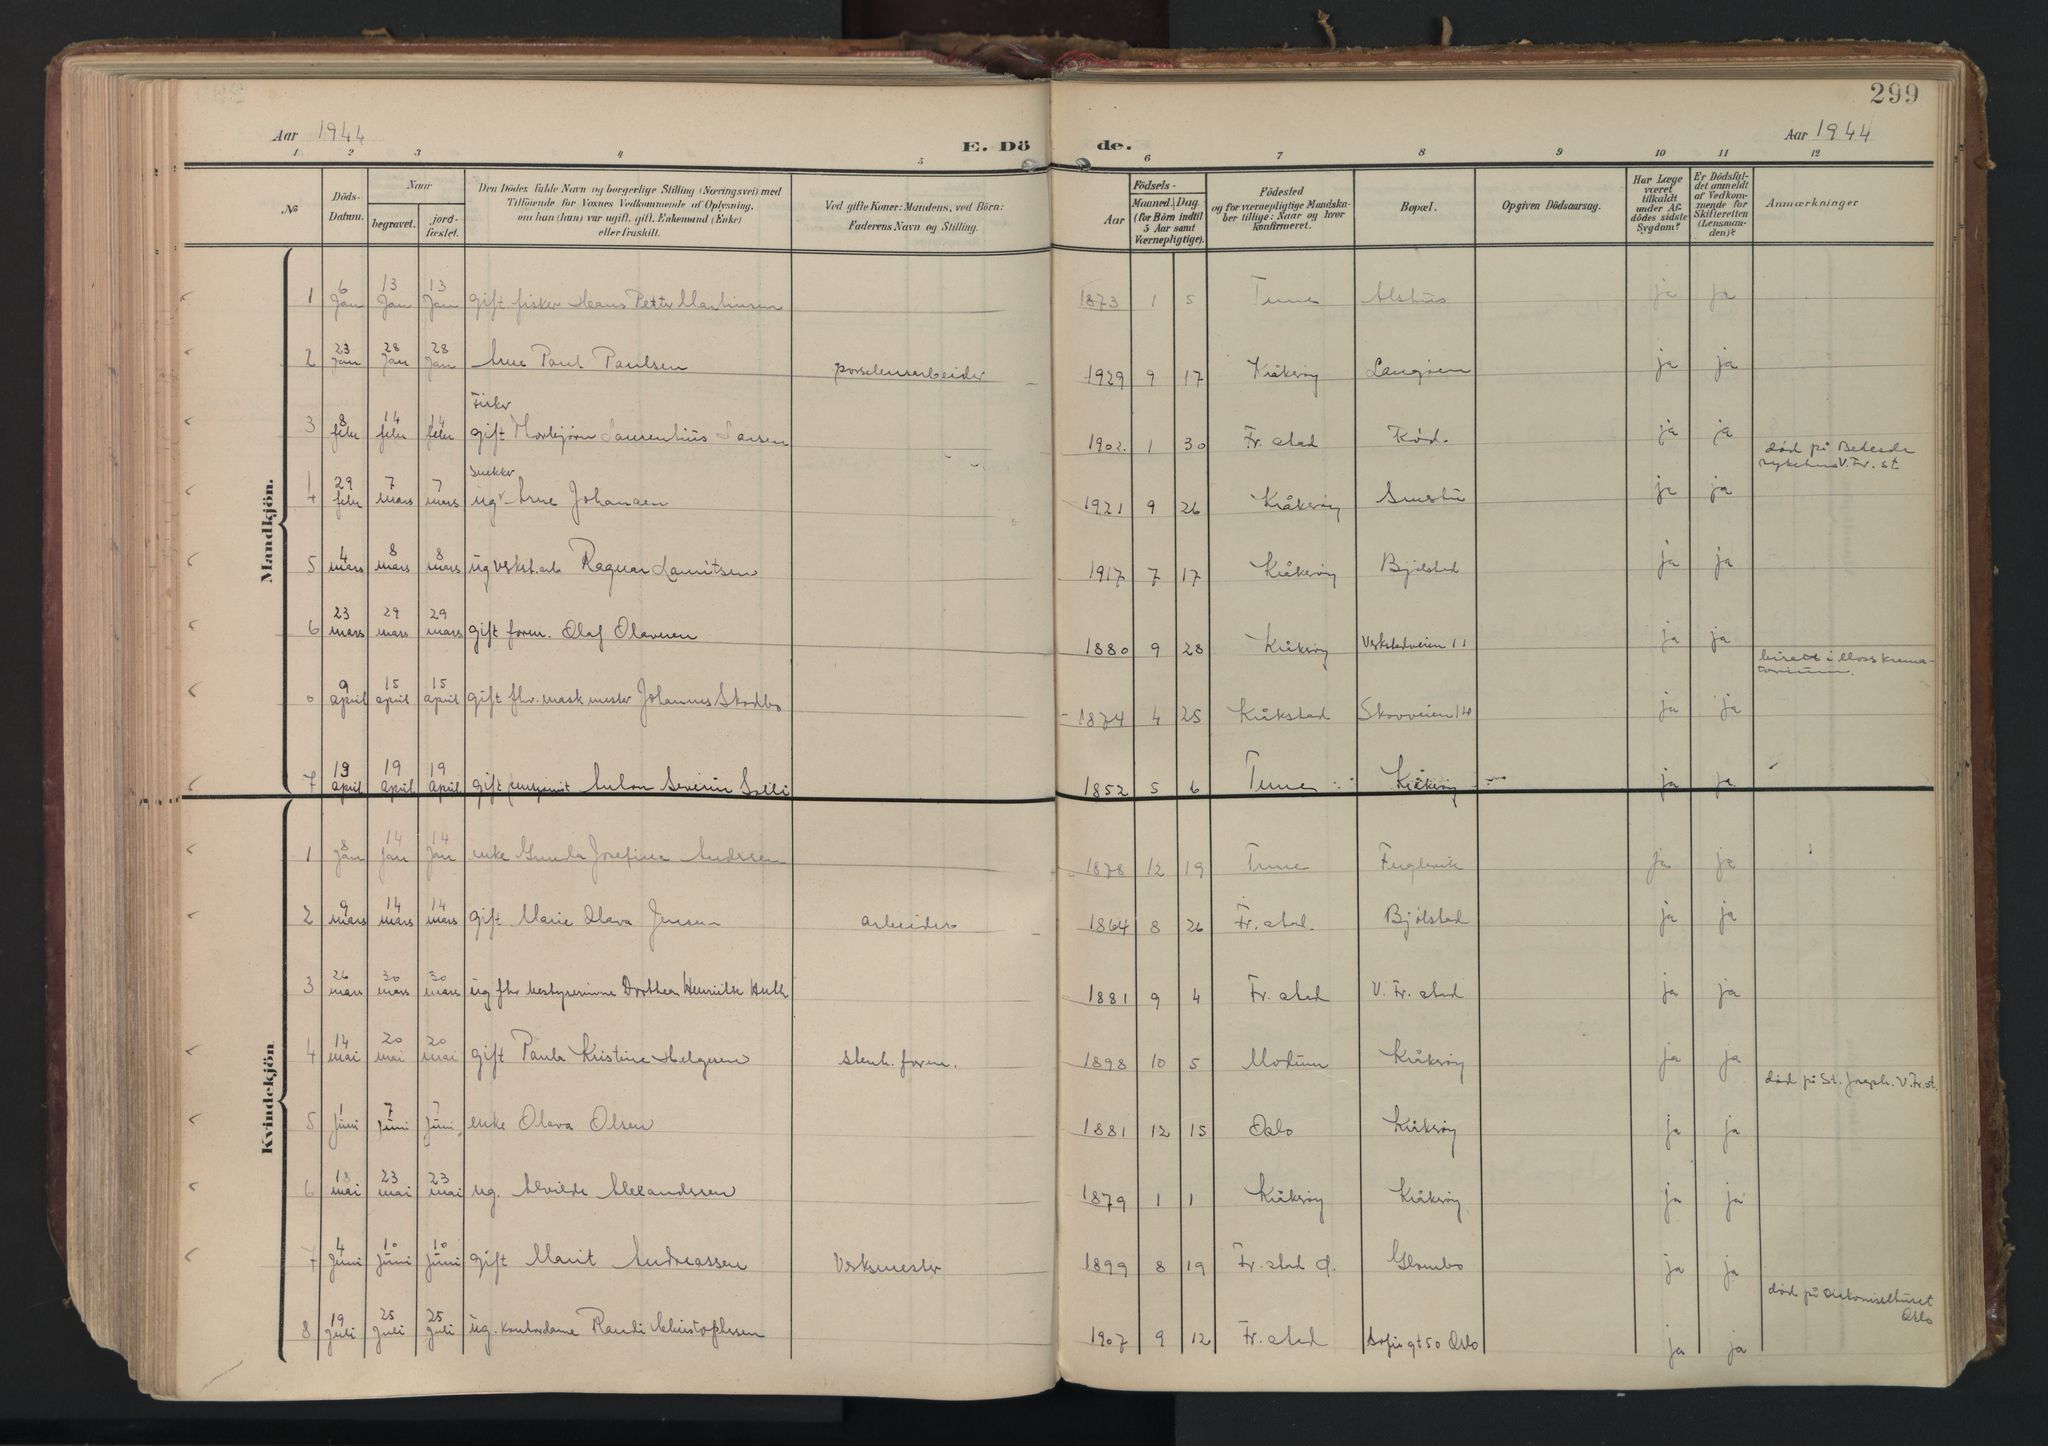 299
Aar 1944
E. Dö de.
Aar 1944
1 2 3 4 5 6 7 8 9 10 11 12
No
Döds-Datum.
Naar
begravet.
jord-fæstet.
Den Dödes fulde Navn og borgerlige Stilling (Næringsvei) med
Tilföiende for Voxnes Vedkommende af Oplysning,
om han (hun) var ugift, gift, Enkemand (Enke)
eller fraskilt.
Ved gifte Koner: Mandens, ved Börn:
Faderens Navn og Stilling.
Födsels-
Aar
Maaned. Dag.
(for Börn indtil
5 Aar samt
Værnepligtige).
Födested
og for værnepligtige Mandska-
ber tillige: Naar og hvor
konfirmeret.
Bopæl.
Opgiven Dödsaarsag.
Har Læge
været
tilkaldt
under Af-
dödes sidste
Sygdom?
Er Dödsfal-
det anmeldt
af Vedkom-
mende for
Skifteretten
(Lensman-
den)?
Anmærkninger
Mandkjön.
1 6 Jan 13 Jan 13 Jan gift fisker Hans Petter Martinsen 1873 1 5 Tune Alshus ja ja
2 23 Jan 28 Jan 28 Jan Arne Paul Paulsen porselensarbeider 1929 9 17 Kråkerøy Langøen ja ja
Fisker
3 8 febr 14 febr 14 febr gift Thorbjørn Laurentius Larsen 1902 1 30 Fr. stad Rød. ja ja død på Betesda sykehus V. Fr. st.
snekker
4 29 febr 7 mars 7 mars ug Arne Johansen 1921 9 26 Kråkerøy Smertu ja ja
5 4 mars 8 mars 8 mars ug verkst.arb Ragnar Lauritsen 1917 7 17 Kråkerøy Bjølstad ja ja
6 23 mars 29 mars 29 mars gift form. Olaf Olavesen 1880 9 28 Kråkerøy Verkstedveien 11 ja ja bisatt i Moss krema-torium.
0 9 april 15 april 15 april gift fhv. mask mester Johannes Skodbo 1874 4 25 Kråkstad Skovveien 14 ja ja
7 13 april 19 april 19 april gift pensjonist Anton Severin Solli 1852 5 6 Tune Kråkerøy ja ja
Kvindekjön
1 8 Jan 14 Jan 14 Jan enke Gunda Josefine Andersen 1878 12 19 Tune Fuglevik ja ja
2 9 mars 14 mars 14 mars gift Marie Olava Jensen arbeider 1864 8 26 Fr. stad. Bjølstad ja ja
3 26 mars 30 mars 30 mars ug fhv bestyrerinne Dorthea Henriette Huth 1881 9 4 Fr. stad V. Fr. stad ja ja
4 14 mai 20 mai 20 mai gift Paula Kristine Helgesen stenh. form. 1898 10 5 Modum Kråkerøy ja ja død på St. Joseph. V. Fr. st.
5 1 Juni 7 Juni 7 Juni enke Olava Olsen 1881 12 15 Oslo Kråkerøy ja ja
6 18 mai 23 mai 23 mai ug. Alvilde Alexandersen 1879 1 1 Kråkerøy Kråkerøy ja ja
7 4 Juni 10 Juni 10 Juni gift Marit Andreassen Verksmester 1899 8 19 Fr. stad d. Glombo ja ja
8 19 Juli 25 Juli 25 Juli ug. kontordame Randi Christophersen 1907 9 12 Fr. stad Sofiegt 50 Oslo ja ja død på Diakonissehuset Oslo